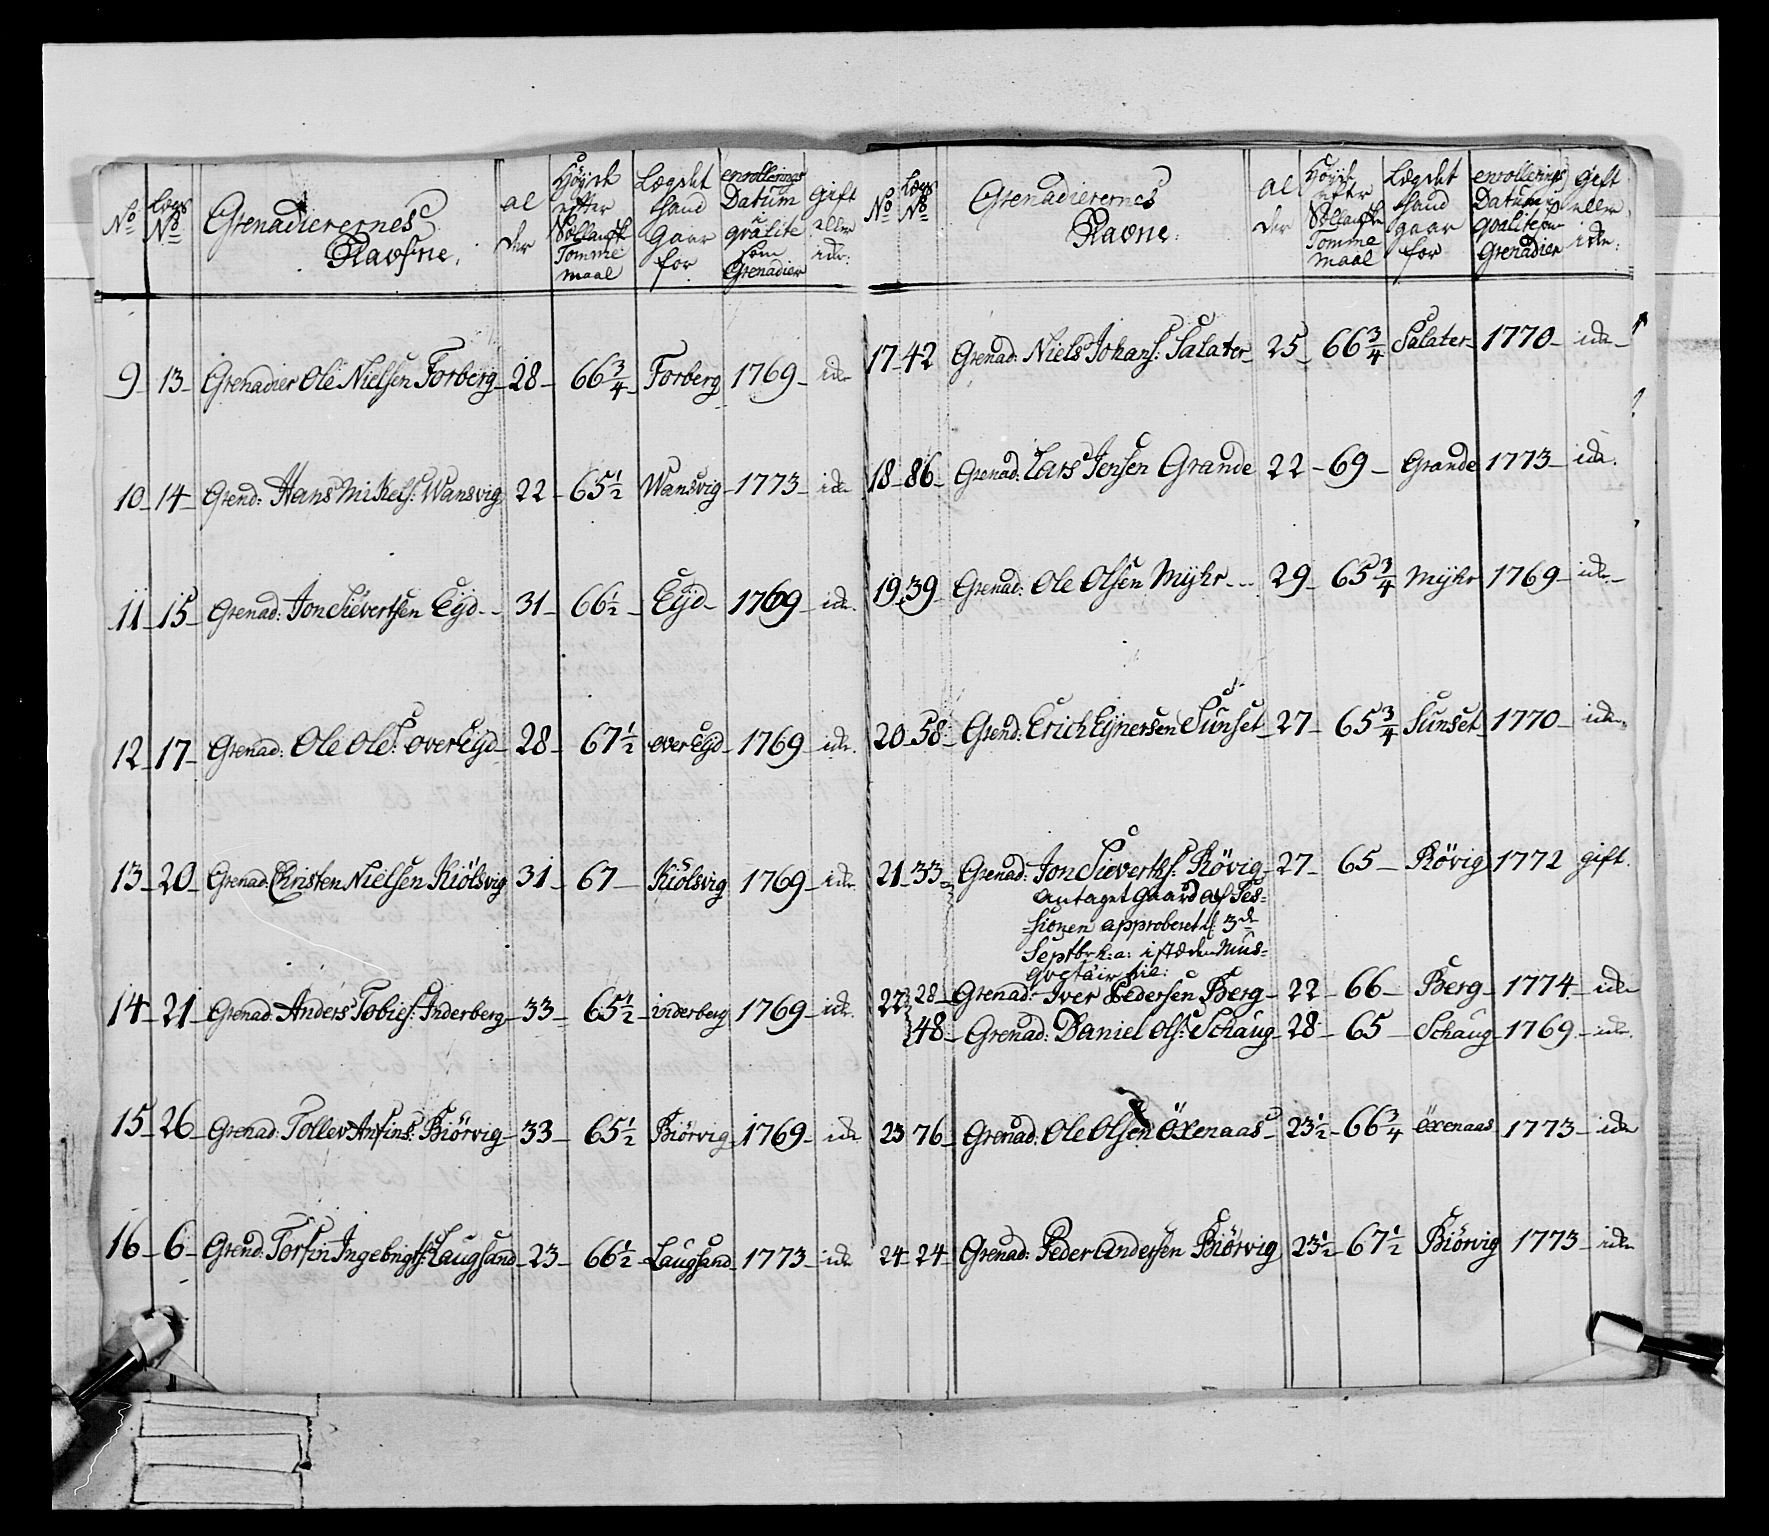 No Lægs No Grenadierernes Nafne. Alder Höyde efter Sollandske Tomme maal Lægdet hand gaar for enrollerings Datum i qvalite som Grenadier Gift eller ide:
9 13 Grenadier Ole Nielsen Forberg 28 66 3/4 Forberg 1769 ide
10 14 Grend: Hans Mikels: Wansvig 22 65 1/2 Wansvig 1773 ide
11 15 Grenad: Jon Sievertsen Eyd 31 66 1/2 Eyd 1769 ide.
12 17 Grenad: Ole Ols: over Eyd 28 67 1/2 over Eyd 1769 ide.
13 20 Grenad: Christen Nielsen Kiölsvig 31 67 Kiölsvig 1769 ide
14 21 Grenad: Anders Tobies: Inderberg 33 65 1/2 inderberg 1769 ide.
15 26 Grenad: Tollev Anfins: Biörvig 33 65 1/2 Biörvig 1769 ide
16 6 Grend: Torfin Ingebrigts: Laugsand 23 66 1/2 Laugsand 1773 ide
No Lægs No Grenadierernes Nafne. Alder Höyde efter Sollandske Tomme maal Lægdet hand gaar for enrollerings Datum i qvalite som Grenadier gift eller ide:
17 42 Grenad: Niels Johans: Salater 25 66 3/4 Salater 1770 ide
18 86 Grenad: Lars Jensen Grande 22 69 Grande 1773 ide.
19 39 Grenad: Ole Olsen Myhr 29 65 3/4 Myhr 1769 ide
20 58 Grend: Erich Eynersen Sunset 27 65 3/4 Sunset 1770 ide
21 33 Grenad: Jon Sieverths: Rövig 27 65 Rövig 1772 gift.
Antaget Gaard af Ses-
sionen approberet d: 3de
Septbr h: a: i stæden Mus-
22 28 Grenad: Iver Pedersen Berg 22 66 Berg 1774 ide
48 Grenad: Daniel Ols: Schaug 28 65 Schaug 1769 ide.
23 76 Grenad: Ole Olsen Öxenaas 23 1/2 66 3/4 öxenaas 1773 ide
24 24 Grenad: Peder Andersen Biörvig 23 1/2 67 1/2 Biörvig 1773 ide